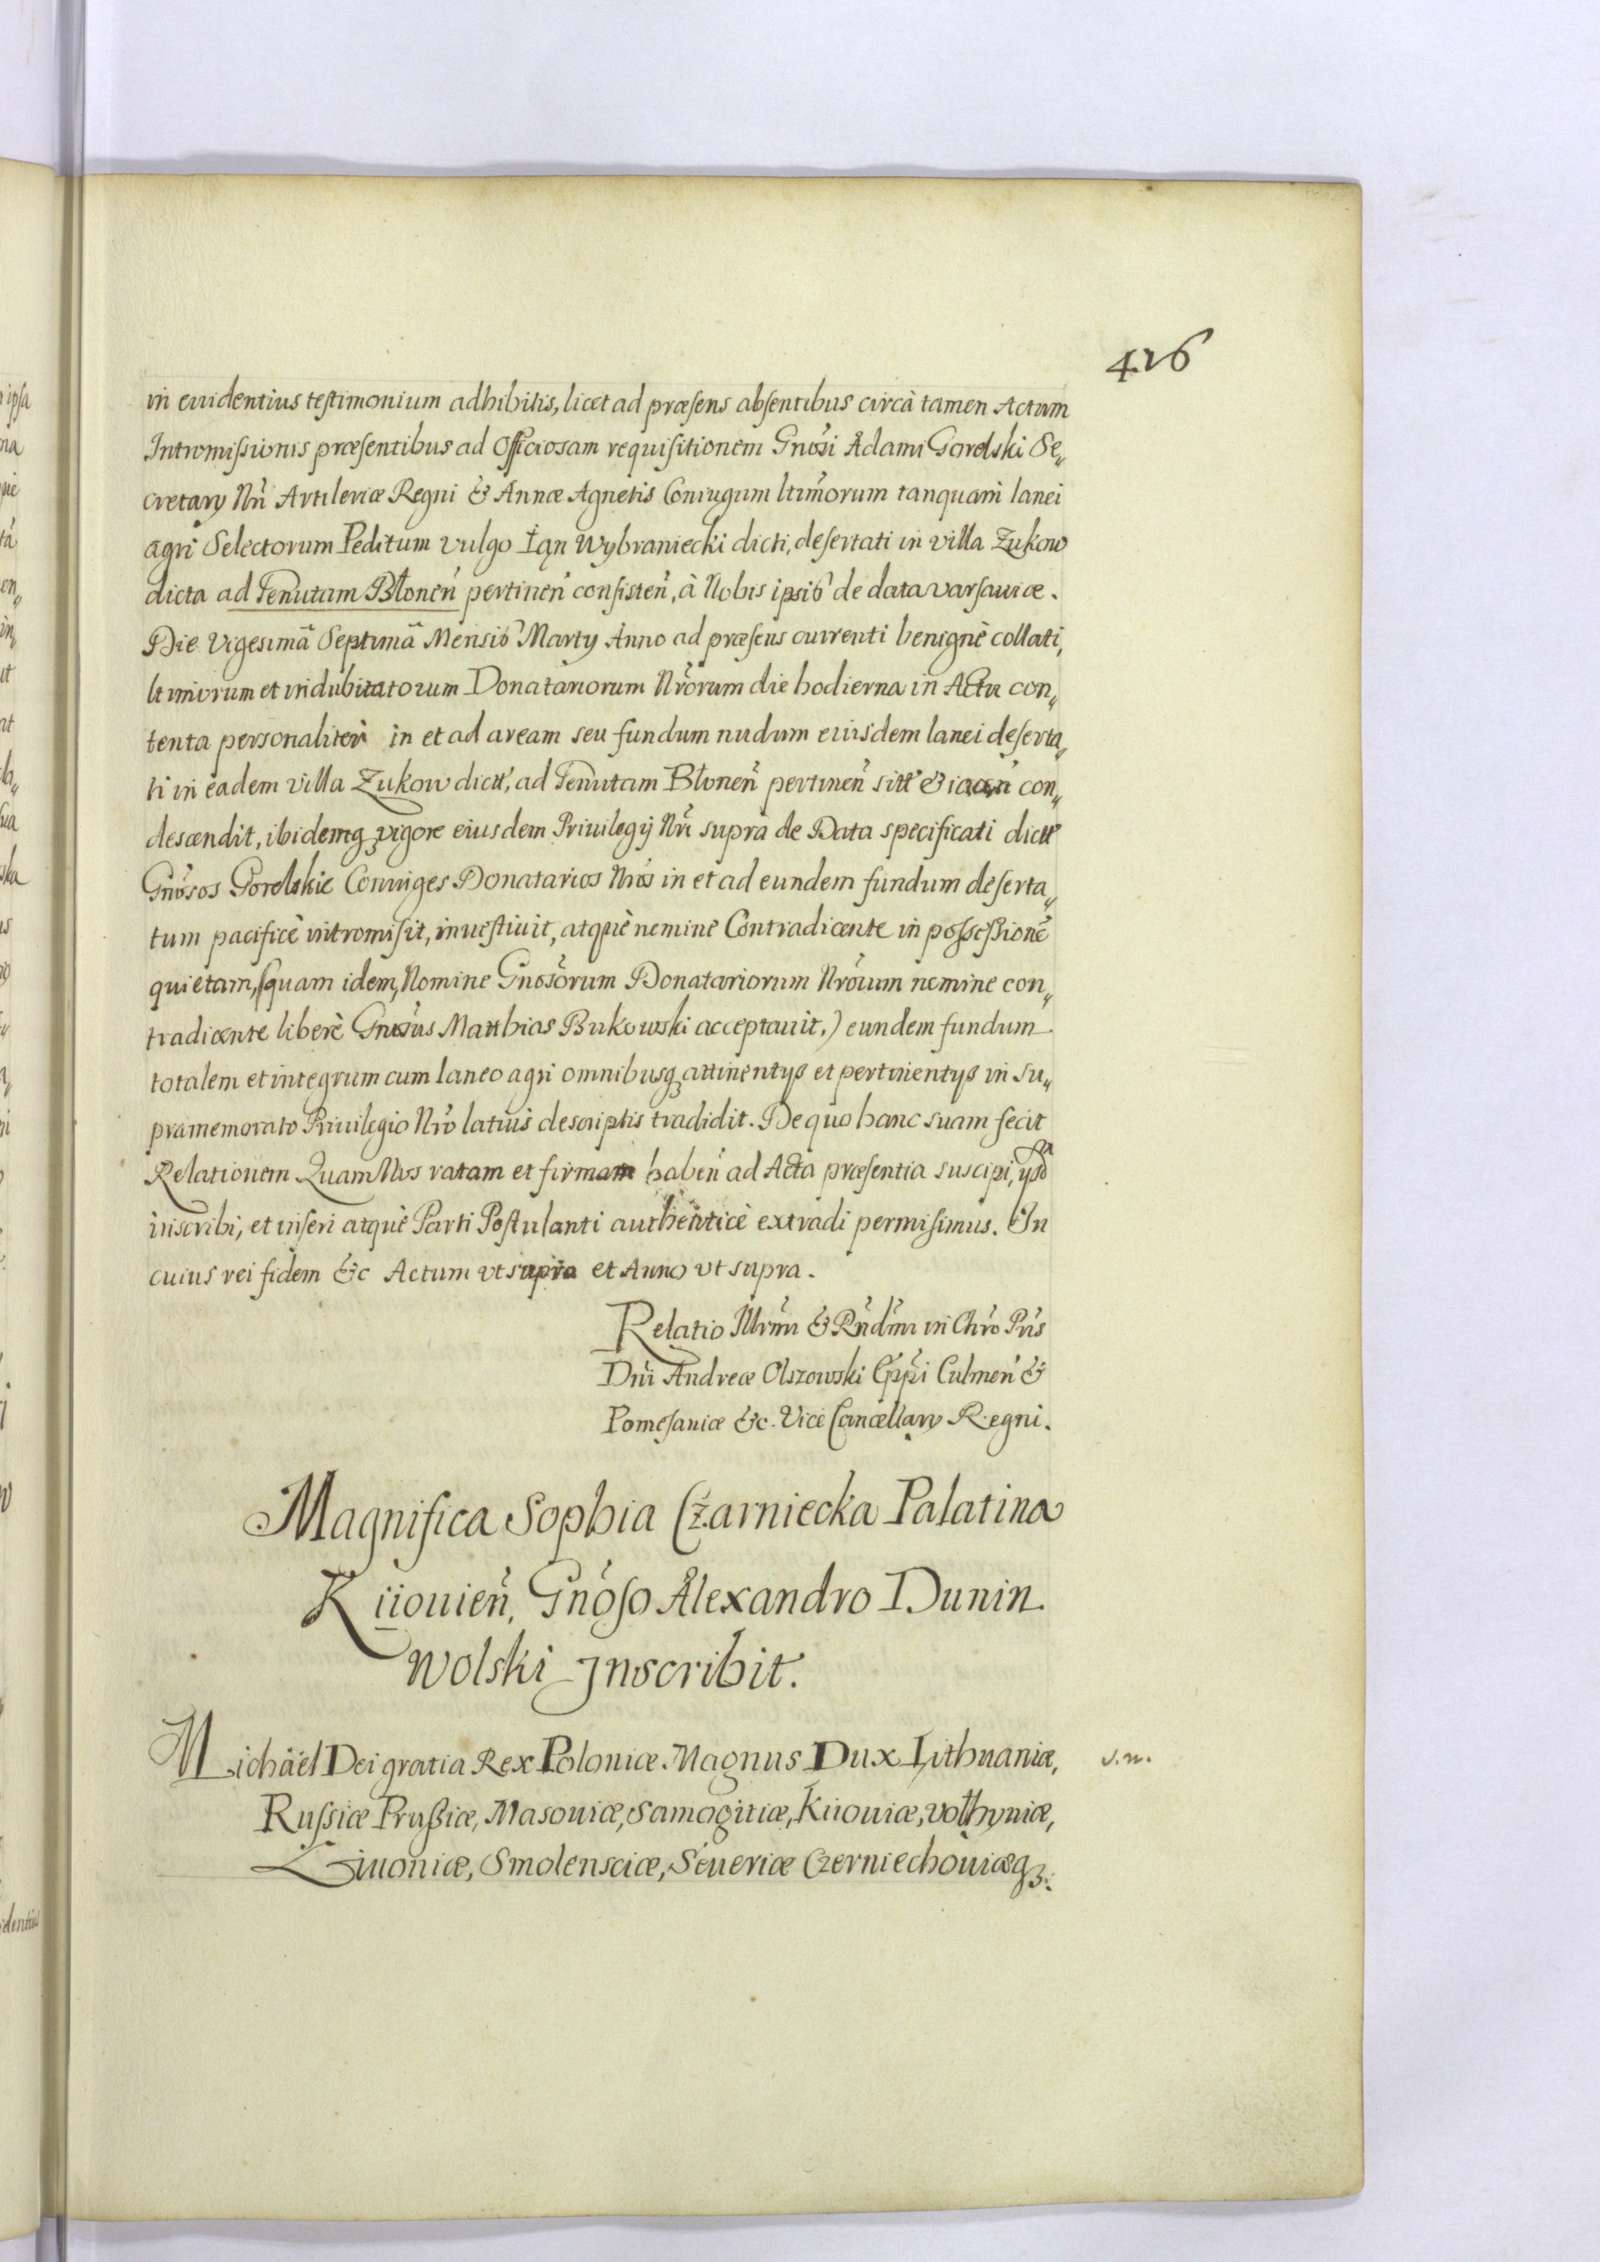 426
in euidentius testimonium adhibitis, licet ad præsens absentibus circà tamen Actum
Intromissionis præsentibus ad Officiosam requisitionem Gnosi Adami Gorolski Se„
cretary Nri Artileriæ Regni & Annæ Agnetis Coniugum ltimorum tanquam lanei
agri Selectorum Peditum vulgo Łan Wybraniecki dicti, desertati in villa Zukow
dicta ad Tenutam Błonen pertinen consisten, à Nobis ipsis de data varsauiæ.
Die Vigesimâ Septimâ Mensis Marty Anno ad præsens currenti benignè collati,
ltimorum et indubitatorum Donatariorum Nrorum die hodierna in Actu con„
tenta personaliter in et ad aream seu fundum nudum eiusdem lanei deserta„
ti in eadem villa Zukow dictt, ad Tenutam Błonen pertinen sitt & iacen con„
descendit, ibidemq3 vigore eiusdem Priuilegij Nri supra de Data specificati dictt
Gnosos Gorolskie Coniuges Donatarios Nros in et ad eundem fundum deserta„
tum pacificè intromisit, inuestiuit, atquè nemine Contradicente in possessionē
quietam, (quam idem, Nomine Gnosorum Donatariorum Nrorum nemine con„
tradicente liberè Gnosus Matthias Bukowski acceptauit,) eundem fundum
totalem et integrum cum laneo agri omnibusq3 attinentijs et pertinentijs in su„
pramemorato Priuilegio Nro latius descriptis tradidit. De quo hanc suam fecit
Relationem Quam Nos ratam et firmam haben ad Acta præsentia suscipi, ijsd
inscribi, et inseri atquè Parti Postulanti authenticè extradi permisimus. In
cuius rei fidem &c Actum vt supra et Anno vt supra.
Relatio Illrmi & Rndmi in Chro Pris
Dni Andreæ Olszowski Eppi Culmen &
Pomesaniæ &c. Vice Cancellary Regni.
Magnifica Sophia Czarniecka Palatina
Kiiouien, Gnoso Alexandro Dunin
Wolski Inscribit.
Michaël Dei gratia Rex Poloniæ Magnus Dux Lithuaniæ,
s.n.
Russiæ Prussiæ, Masouiæ, Samogitiæ, Kiiouiæ, volhyniæ,
Liuoniæ, Smolensciæ, Seueriæ Czerniechouiæq3.